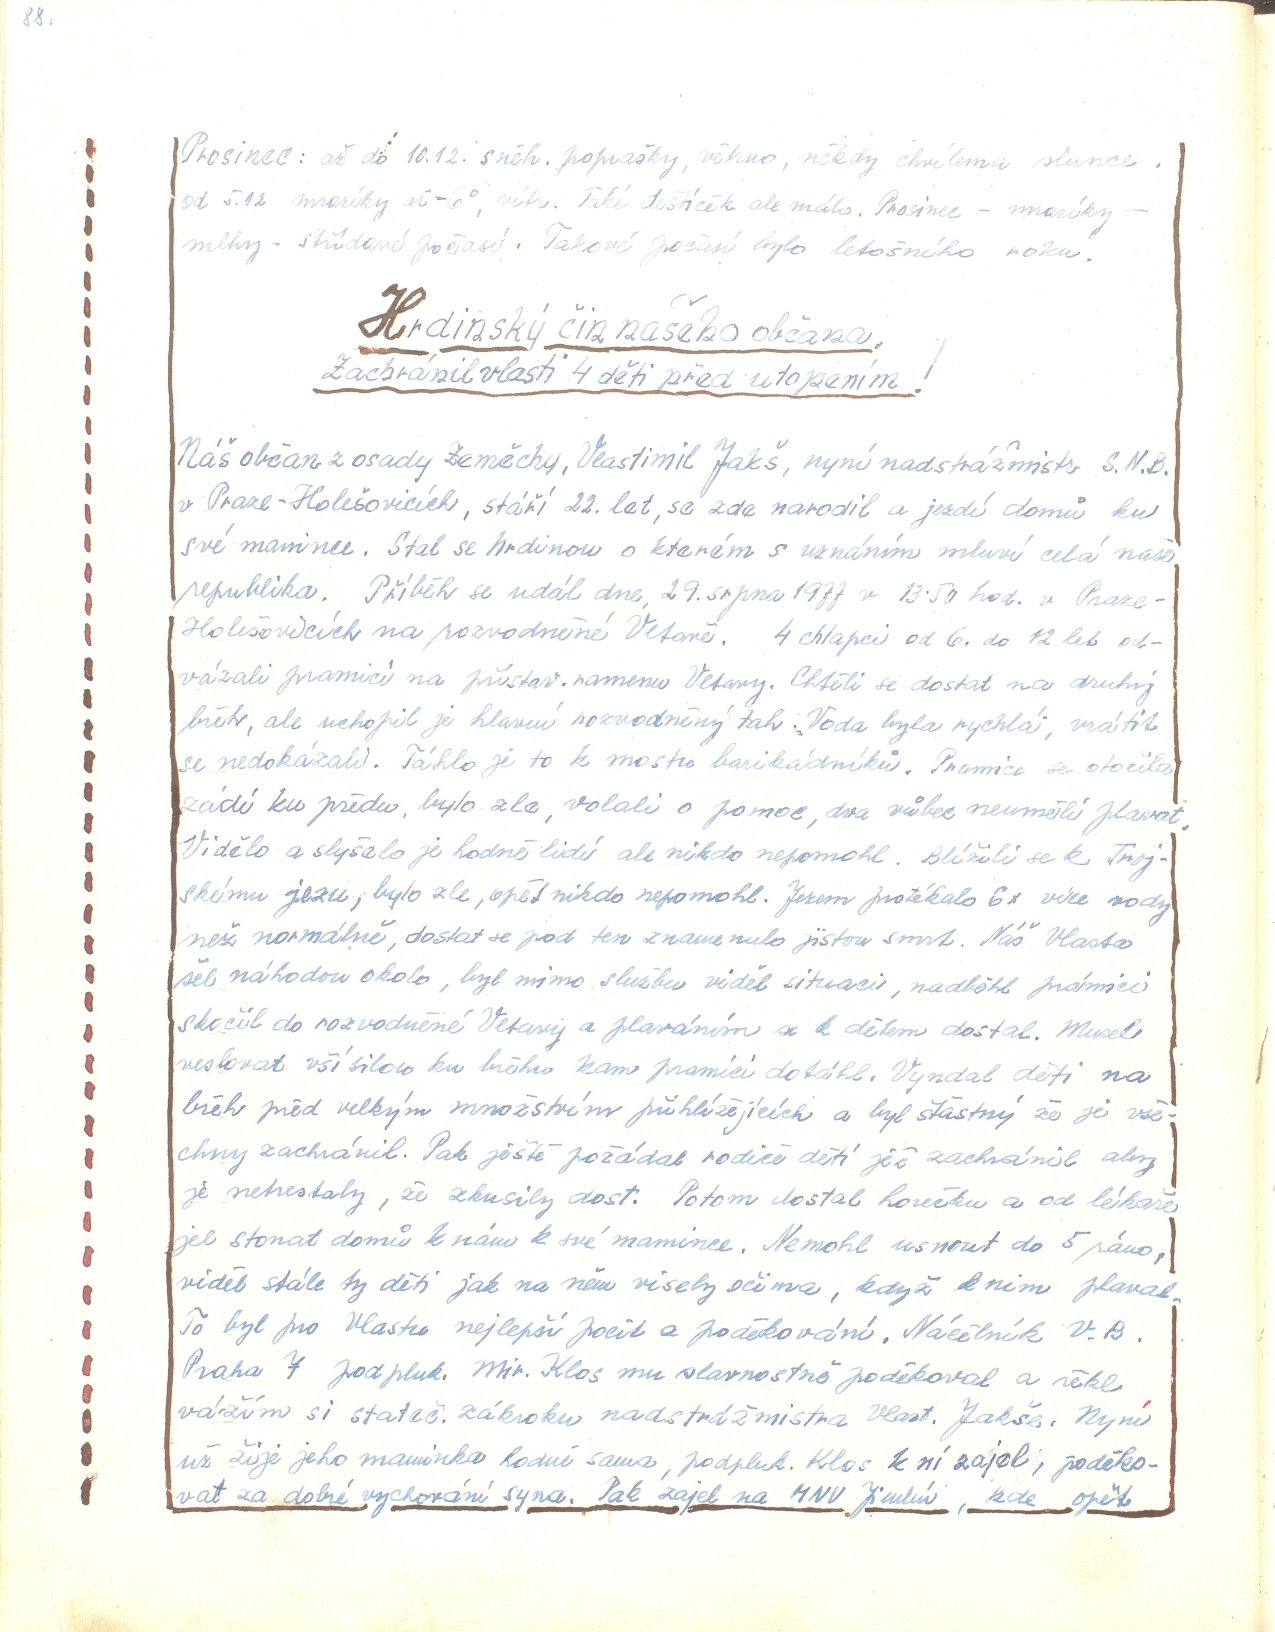 88.
Prosinec: až do 10.12. sněh. poprašky, větrno, někdy chvílema slunce.
od 5.12 mrazíky až -6°, vítr. Také deštíček ale málo. Prosinec - mrazíky -
mlhy - střídavé počasí. Takové počasí bylo letošního roku.
Hrdinský čin našeho občana.
Zachránil vlasti 4 děti před utopením!
Náš občan z osady Zeměchy, Vlastimil Jakš, nyní nadstrážmistr S.N.B.
v Praze-Holešovicích, stáří 22. let, se zde narodil a jezdí domů ku
své mamince. Stal se hrdinou o kterém s uznáním mluví celá naše
republika. Příběh se udál dne, 29. srpna 1977 v 13.50 hod. v Praze-
Holešovicích na rozvodněné Vltavě. 4 chlapci od 6. do 12 let od-
vázali pramici na přístav. ramenu Vltavy. Chtěli se dostat na druhý
břeh, ale uchopil je hlavní rozvodněný tah. Voda byla rychlá, vrátit
se nedokázali. Táhlo je to k mostu barikádníků. Pramice se otočila
zádí ku předu, bylo zle, volali o pomoc, dva vůbec neuměli plavat.
Vidělo a slyšelo je hodně lidí ale nikdo nepomohl. Blížili se k Troj-
skému jezu, bylo zle, opět nikdo nepomohl. Jezem protékalo 6x více vody
než normálně, dostat se pod ten znamenalo jistou smrt. Náš Vlasta
šel náhodou okolo, byl mimo službu viděl situaci, nadběhl prámici
skočil do rozvodněné Vltavy a plaváním se k dětem dostal. Musel
veslovat vší silou ku břehu kam pramici dotáhl. Vyndal děti na
břeh před velkým množstvím přihlížejících a byl šťastný že je vše-
chny zachránil. Pak ještě požádal rodiče dětí jěž zachránil aby
je netrestaly, že zkusily dost. Potom dostal horečku a od lékaře
jel stonat domů k nám k své mamince. Nemohl usnout do 5 ráno,
viděl stále ty děti jak na něm visely očima, když k nim plaval.
To byl pro Vlastu nejlepší pocit a poděkování. Náčelník V.B.
Praha 7 podpluk. Mir. Klos mu slavnostně poděkoval a řekl
vážím si stateč. zákroku nadstrážmistra Vlast. Jakše. Nyní
už žije jeho maminka hodně sama, podpluk. Klos k ní zajel, poděko-
vat za dobré vychování syna. Pak zajel na MNV Jimlín, kde opět